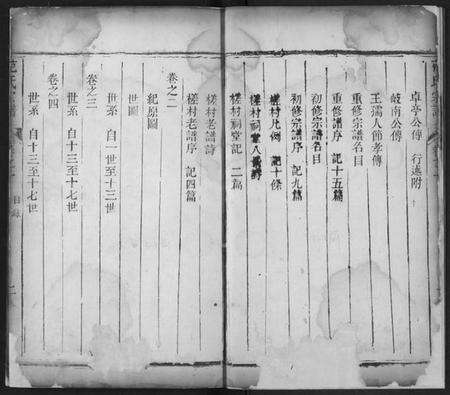 卓亭公傳 行述附
岐南公傳
王孺人節孝傳
重修宗譜名目
重修譜序 記十五篇
初修宗譜名目
初修宗譜序 記九篇
槎村凡例 記十條
槎村祠堂八景詩
槎村祠堂記 二篇
槎村老譜詩
槎村老譜序 記四篇
卷之二
紀原圖
世圖
世系 自一世至十三世
卷之三
世系 自十三至十七世
卷之四
世系 自十三至十七世
目錄
二